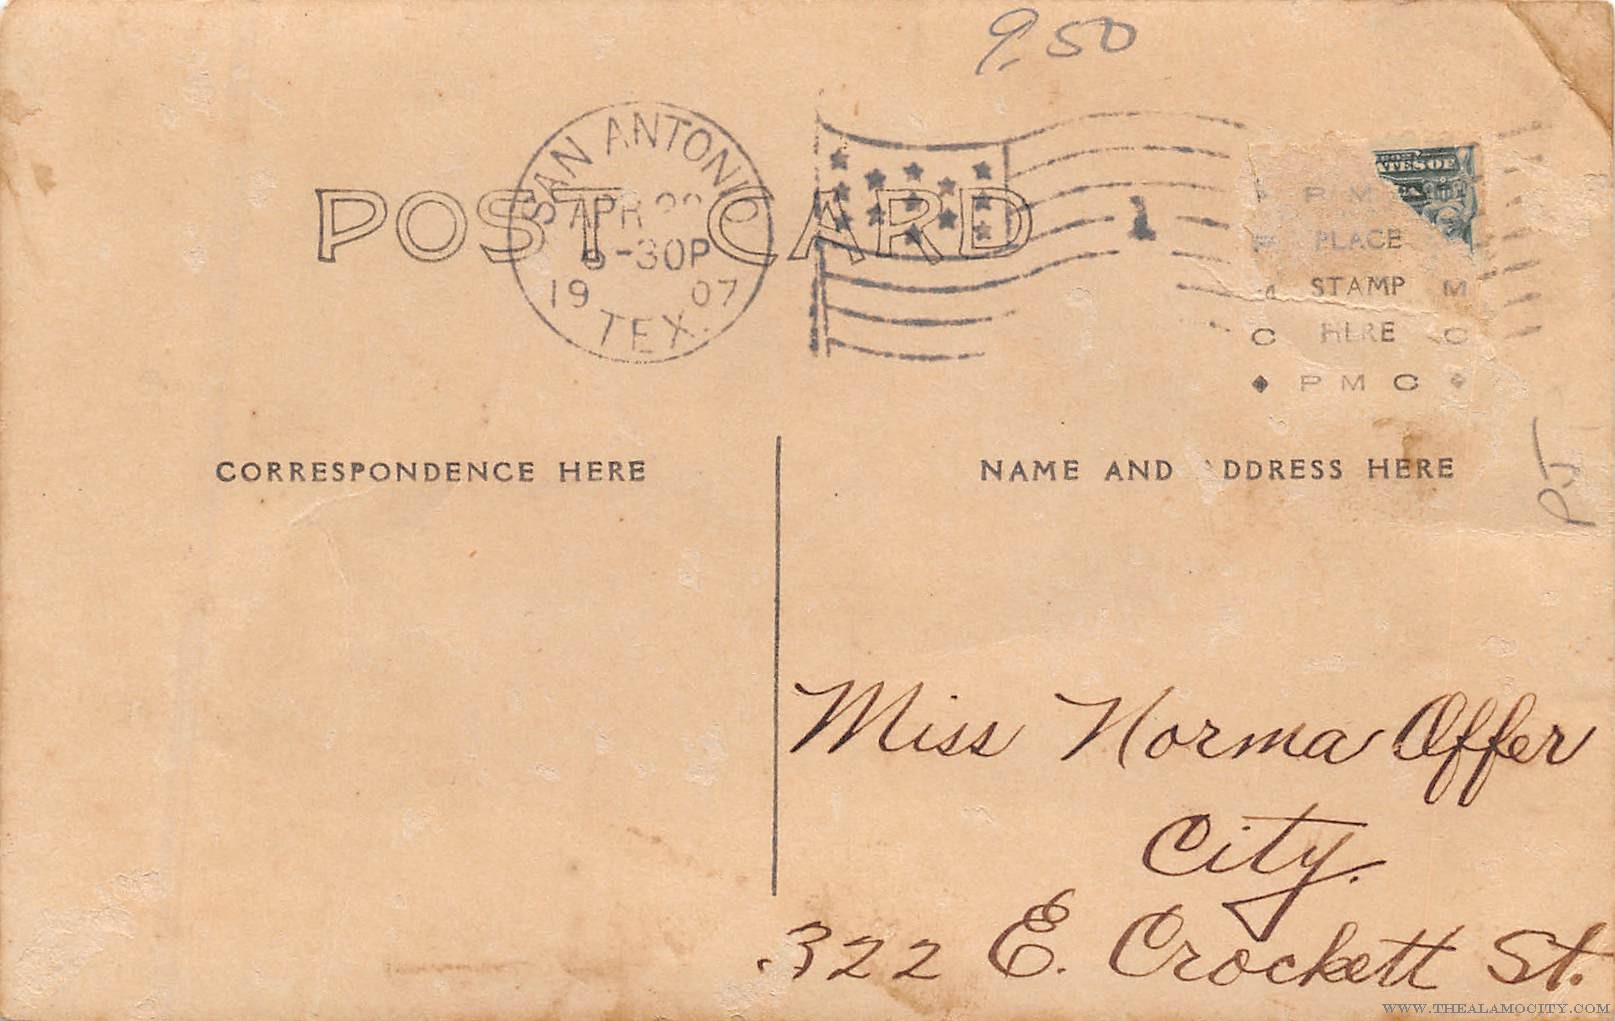 9.50
SAN ANTONIO
APR
-30P
19 07
TEX.
POST CARD
1
TES OF
P M
PLACE
M STAMP M
C HERE C
P M C
PJ
CORRESPONDENCE HERE
NAME AND DDRESS HERE
Miss Norma Offer
City.
322 E. Crockett St.
WWW.THEALAMOCITY.COM